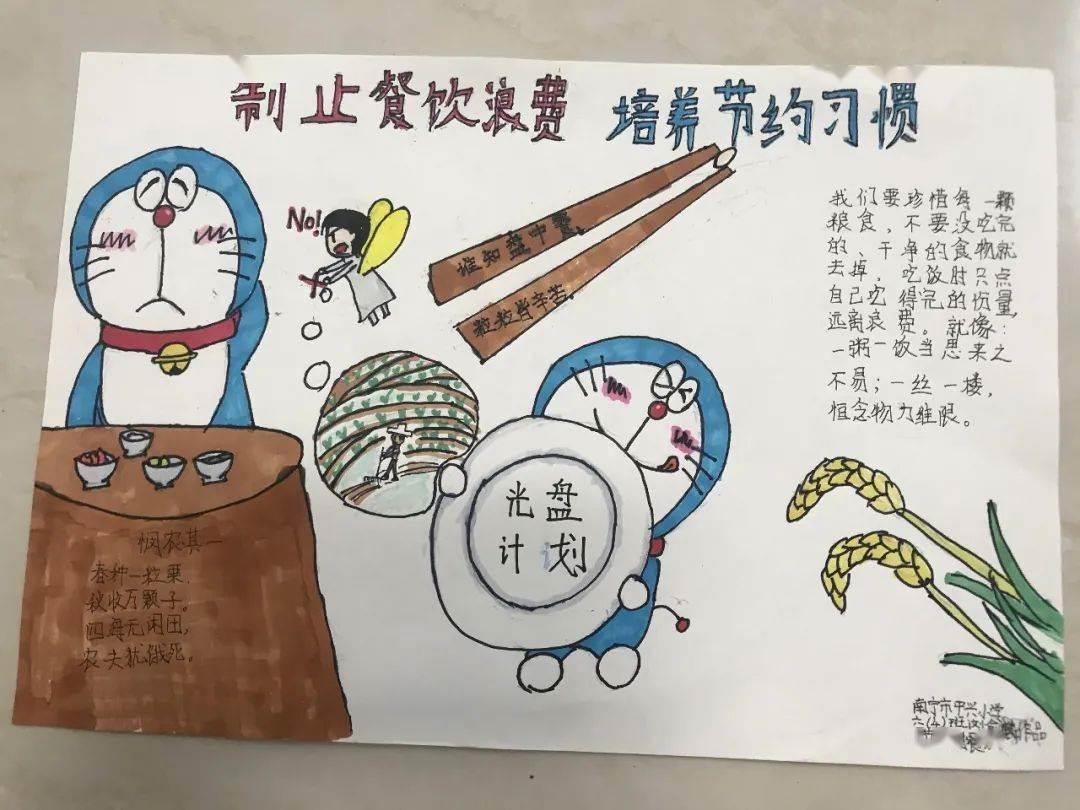 制止餐饮浪费 培养节约习惯
No!
谁知盘中餐,
粒粒皆辛苦。
我们要珍惜每一颗
粮食,不要没吃完
的、干净的食物就
去掉,吃饭时只点
自己吃得完的份量,
远离浪费。就像:
一粥一饭当思来之
不易;一丝一楼,
恒念物力维限。
光盘
计划
悯农其一
春种一粒粟,
秋收万颗子。
四海无闲田,
农夫犹饿死。
南宁市中兴小学
六(4)班
作品